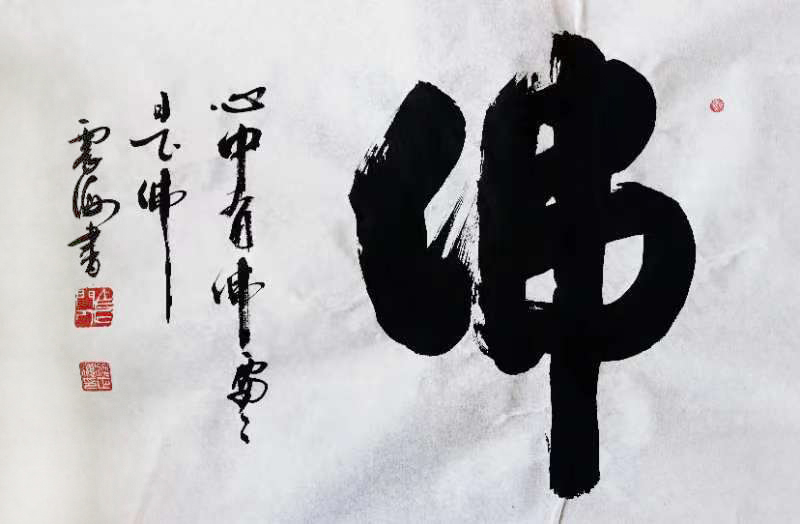 佛
心中有佛處處
是佛
震海書